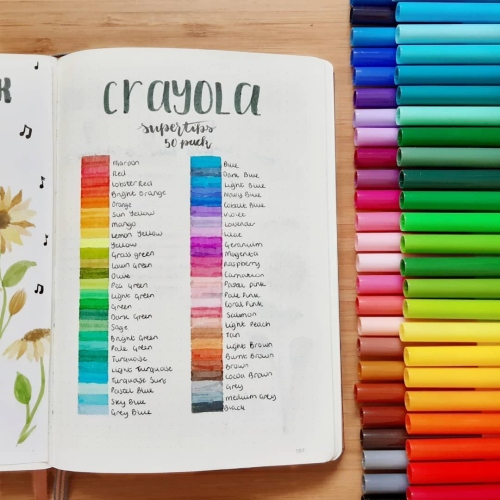 K
crayola
supertips
50 pack
Maroon
Red
Lobster Red
Bright Orange
Orange
Sun Yellow
Mango
Lemon Yellow
Yellow
Grass green
Lawn Green
Olive
Pea Green
Light Green
Green
Dark Green
Sage
Bright Green
Pale Green
Turquoise
Light Turquoise
Turquoise Surf
Pastel Blue
Sky Blue
Grey Blue
Blue
Dark Blue
Light Blue
Navy Blue
Cobalt Blue
Violet
Lavender
Lilac
Geranium
Magenta
Raspberry
Carnation
Pastel Pink
Pale Pink
Coral Pink
Salmon
Light Peach
Tan
Light Brown
Burnt Brown
Brown
Cocoa Brown
Grey
Medium Grey
Black